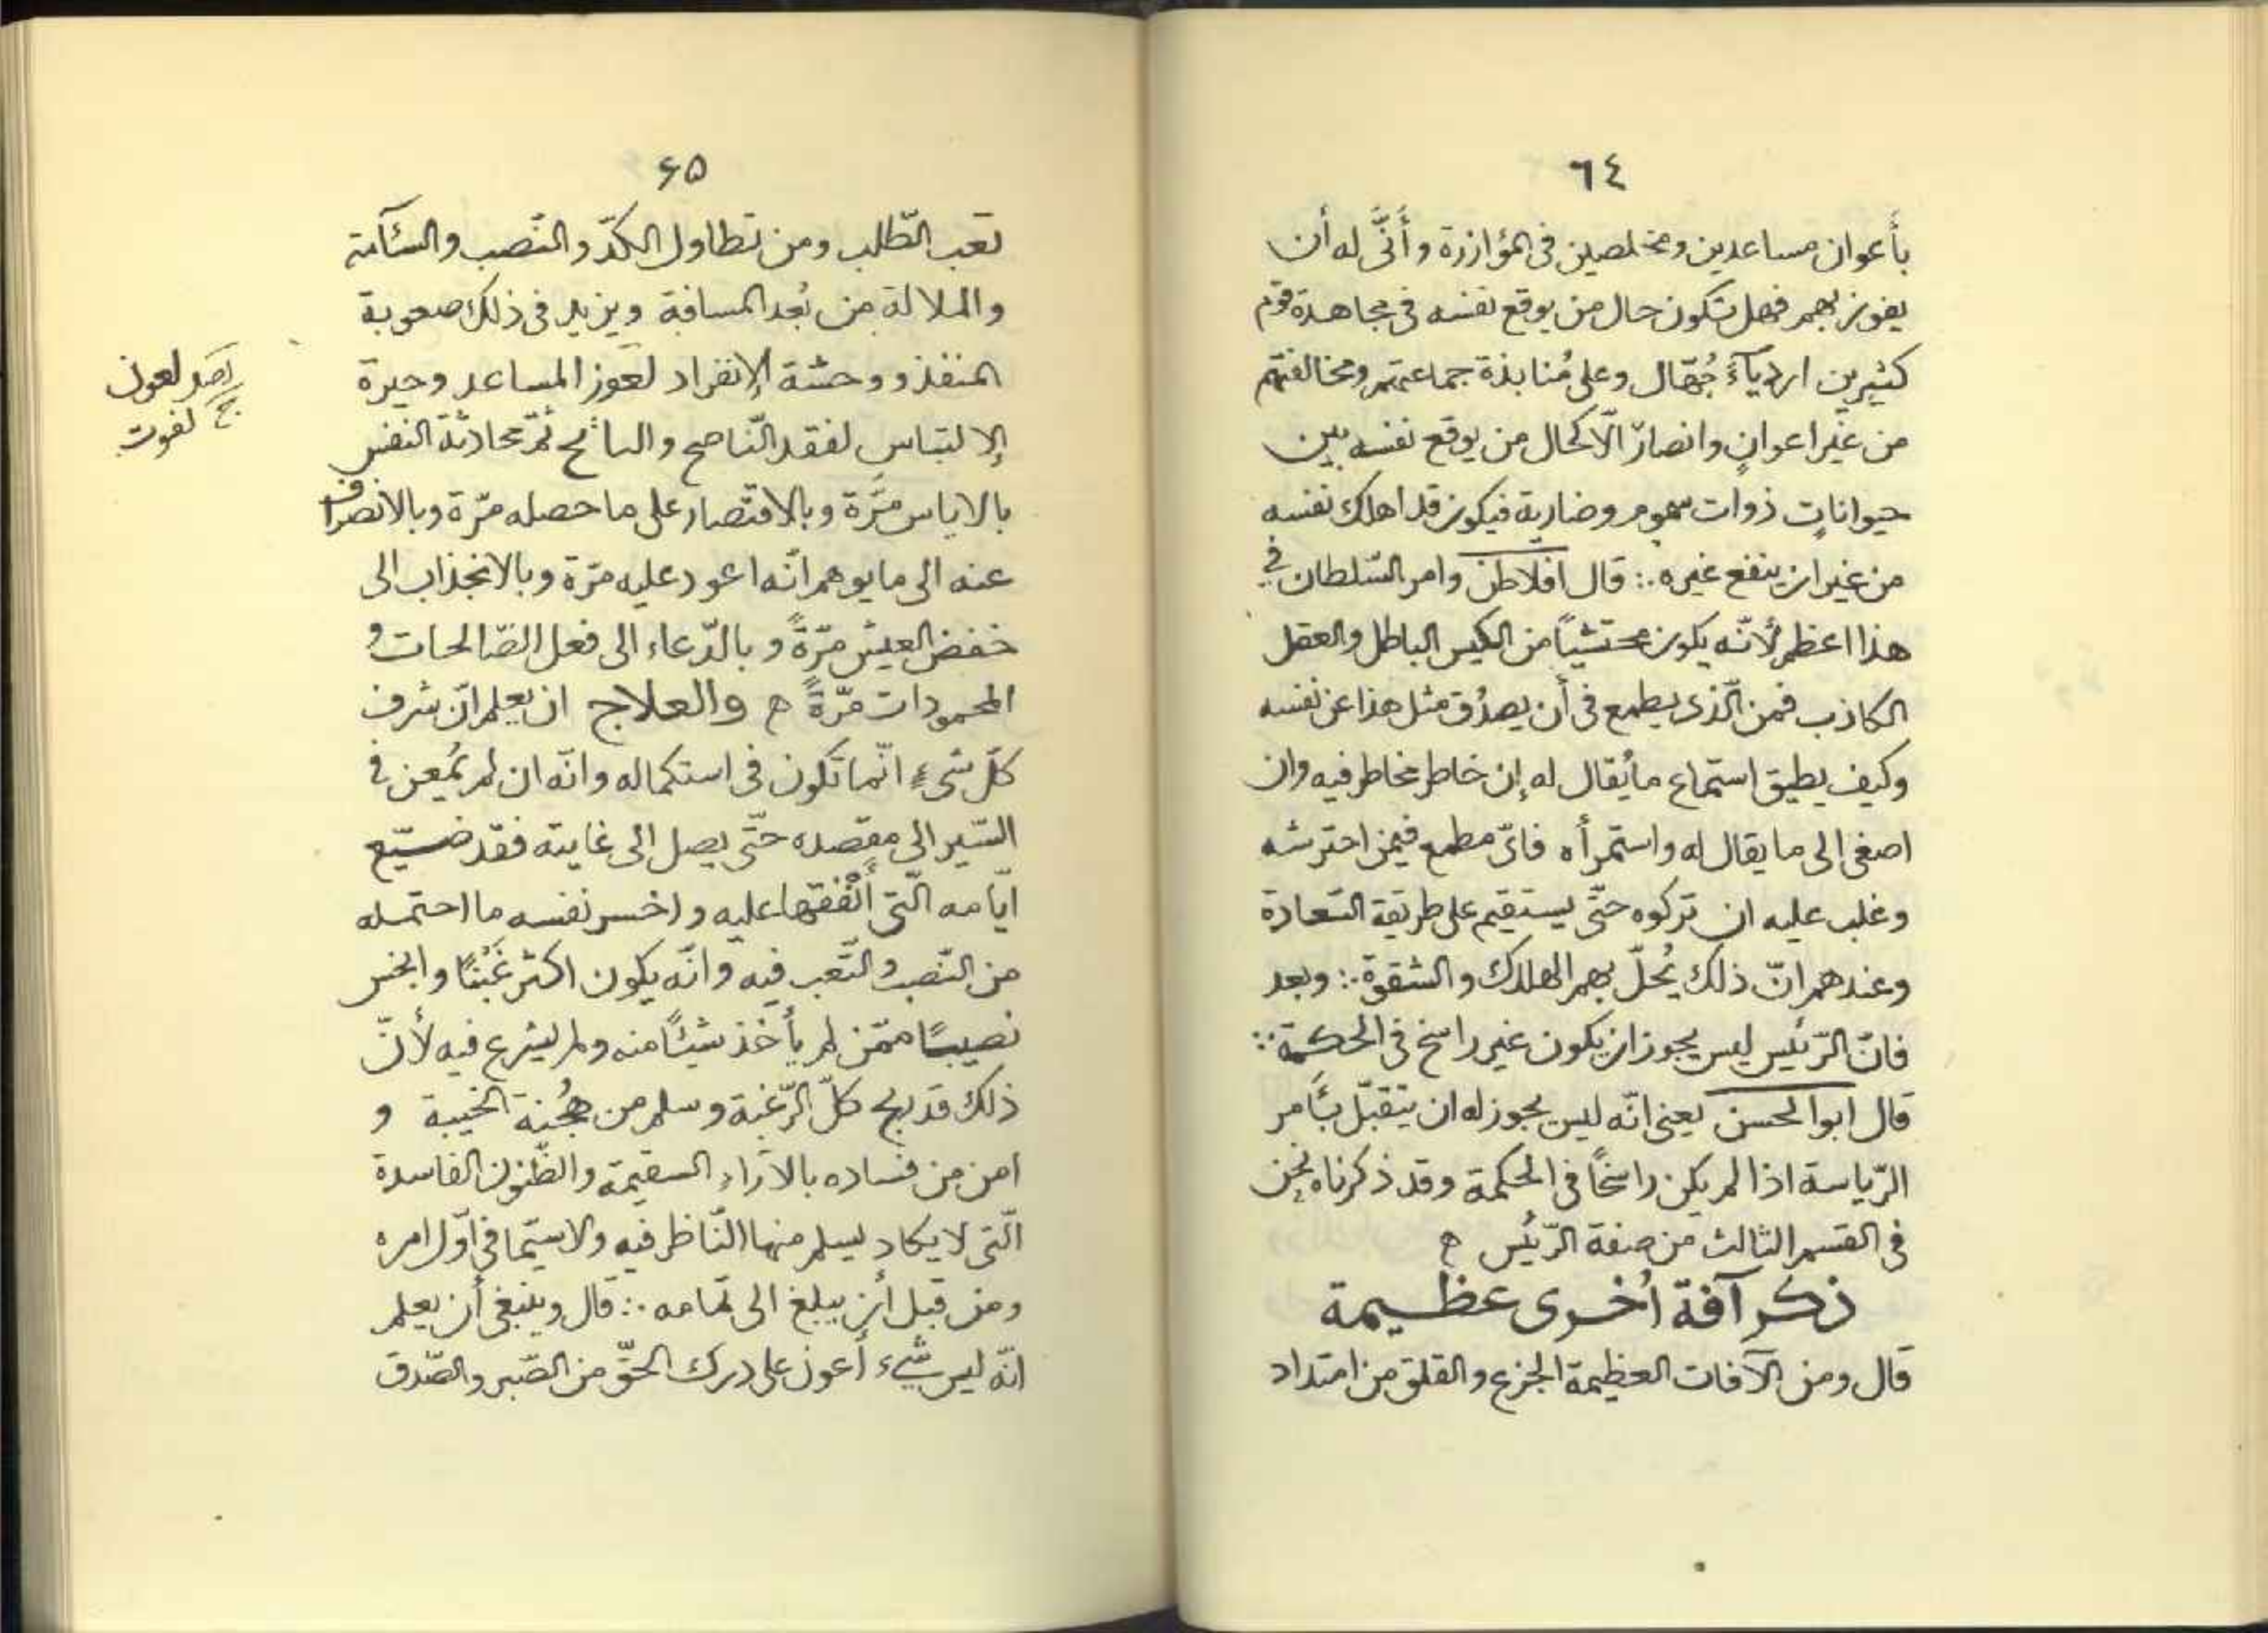 ٦٤
بأَعوان مساعدين ومخلصين فى المؤازرة وأَنَّى له أن
يفوز بهم فهل تكون حال من يوقع نفسه فى مجاهدة قوم
كثيرين اردياءَ جُهّال وعلى مُنابذة جماعتهم ومخالفتهم
من غير اعوانٍ وانصارٍ الّا كحال من يوقع نفسه بين
حيواناتٍ ذوات سموم وضارية فيكون قد اهلك نفسه
من غير ان ينفع غيره ∴ قال افلاطن وامر السّلطان فى
هذا اعظم لأنّه يكون محتشيًا من الكيس الباطل والعقل
الكاذب فمن الّذى يطمع فى أن يصدُق مثل هذا عن نفسه
وكيف يطيق استماع ما يُقال له إن خاطر مخاطر فيه وان
اصغى الى ما يقال له واستمرأه فاىّ مطمع فيمن احترشه
وغلب عليه ان تركوه حتّى يستقيم على طريقة السّعادة
وعندهم انّ ذلك يُحلّ بهم الهلاك والشقوة ∴ وبعد
فانّ الرّئيس ليس يجوز ان يكون غير راسخ فى الحكمة ∴
قال ابوالحسن يعنى انّه ليس يجوز له ان يتقبّل بأَمر
الرّياسة اذا لم يكن راسخاً فى الحكمة وقد ذكرناه نحن
فى القسم الثالث من صفة الرّئيس ه
ذكر آفة اُخرى عظيمة
قال ومن الآفات العظيمة الجزع والقلق من امتداد
۶۵
تعب الطّلب ومن تطاول الكدّ والنّصب والسّآمة
والملالة من بُعد المسافة ويزيد فى ذلك صعوبة
المنفذ ووحشة الإنفراد لعَوز المساعد وحيرة
الإلتباس لفقد النّاصح ثمّ محادثة النفس
بالاياس مرَّة وبالاقتصار على ما حصله مرّة وبالانصراف
عنه الى ما يوهم انّه اعود عليه مرّة وبالانجذاب الى
خفض العيش مرّةً وبالدّعاء الى فعل الصّالحات و
المحمودات مرّةً ه والعلاج ان يعلم انّ شرف
كلّ شىءٍ انّما تكون فى استكماله وانّه ان لم يُمعن فى
السّير الى مقصده حتّى يصل الى غايته فقد ضيّع
ايّامه الّتى أَنْفَقَها عليه واخسر نفسه ما احتمله
من النّصب والتّعب فيه وانّه يكون اكثر غَبْنًا وابخس
نصيبًا ممّن لم يأخذ شيئًا منه ولم يشرع فيه لأنّ
ذلك قد ربح كلّ الرّغبة وسلم من هُجْنة الخيبة و
امن من فساده بالآراء السقيمة والظّنون الفاسدة
الّتى لا يكاد يسلم منها النّاظر فيه ولاسيّما فى اوّل امره
ومن قبل أن يبلغ الى تمامه ∴ قال وينبغى أن يعلم
انّه ليس شىء أعون على درك الحقّ من الصّبر والصّدق
لعون
لفوت